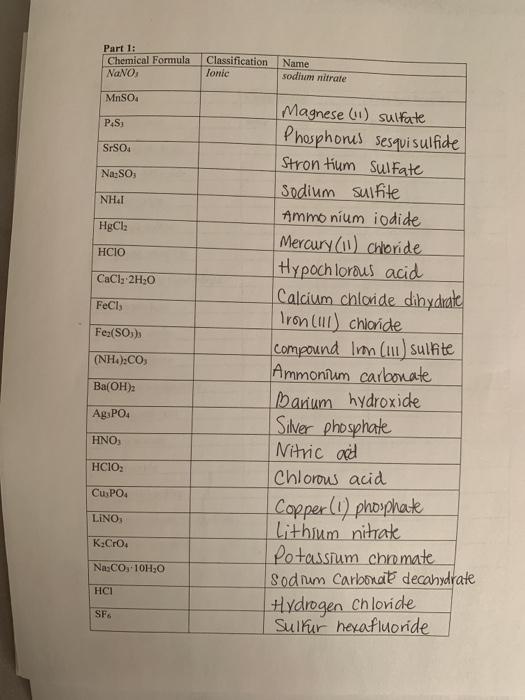 Part 1:
Chemical Formula Classification Name
NaNO₃ Ionic sodium nitrate
MnSO₄ Magnese (11) sulfate
P₄S₃ Phosphorus sesquisulfide
SrSO₄ Strontium Sulfate
Na₂SO₃ Sodium sulfite
NH₄I Ammonium iodide
HgCl₂ Mercury (11) chloride
HClO Hypochlorous acid
CaCl₂·2H₂O Calcium chloride dihydrate
FeCl₃ Iron (111) chloride
Fe₂(SO₃)₃ compound Iron (111) sulfite
(NH₄)₂CO₃ Ammonium carbonate
Ba(OH)₂ Barium hydroxide
Ag₃PO₄ Silver phosphate
HNO₃ Nitric acid
HClO₂ Chlorous acid
Cu₃PO₄ Copper (1) phosphate
LiNO₃ Lithium nitrate
K₂CrO₄ Potassium chromate
Na₂CO₃·10H₂O Sodium Carbonate decahydrate
HCl Hydrogen chloride
SF₆ Sulfur hexafluoride